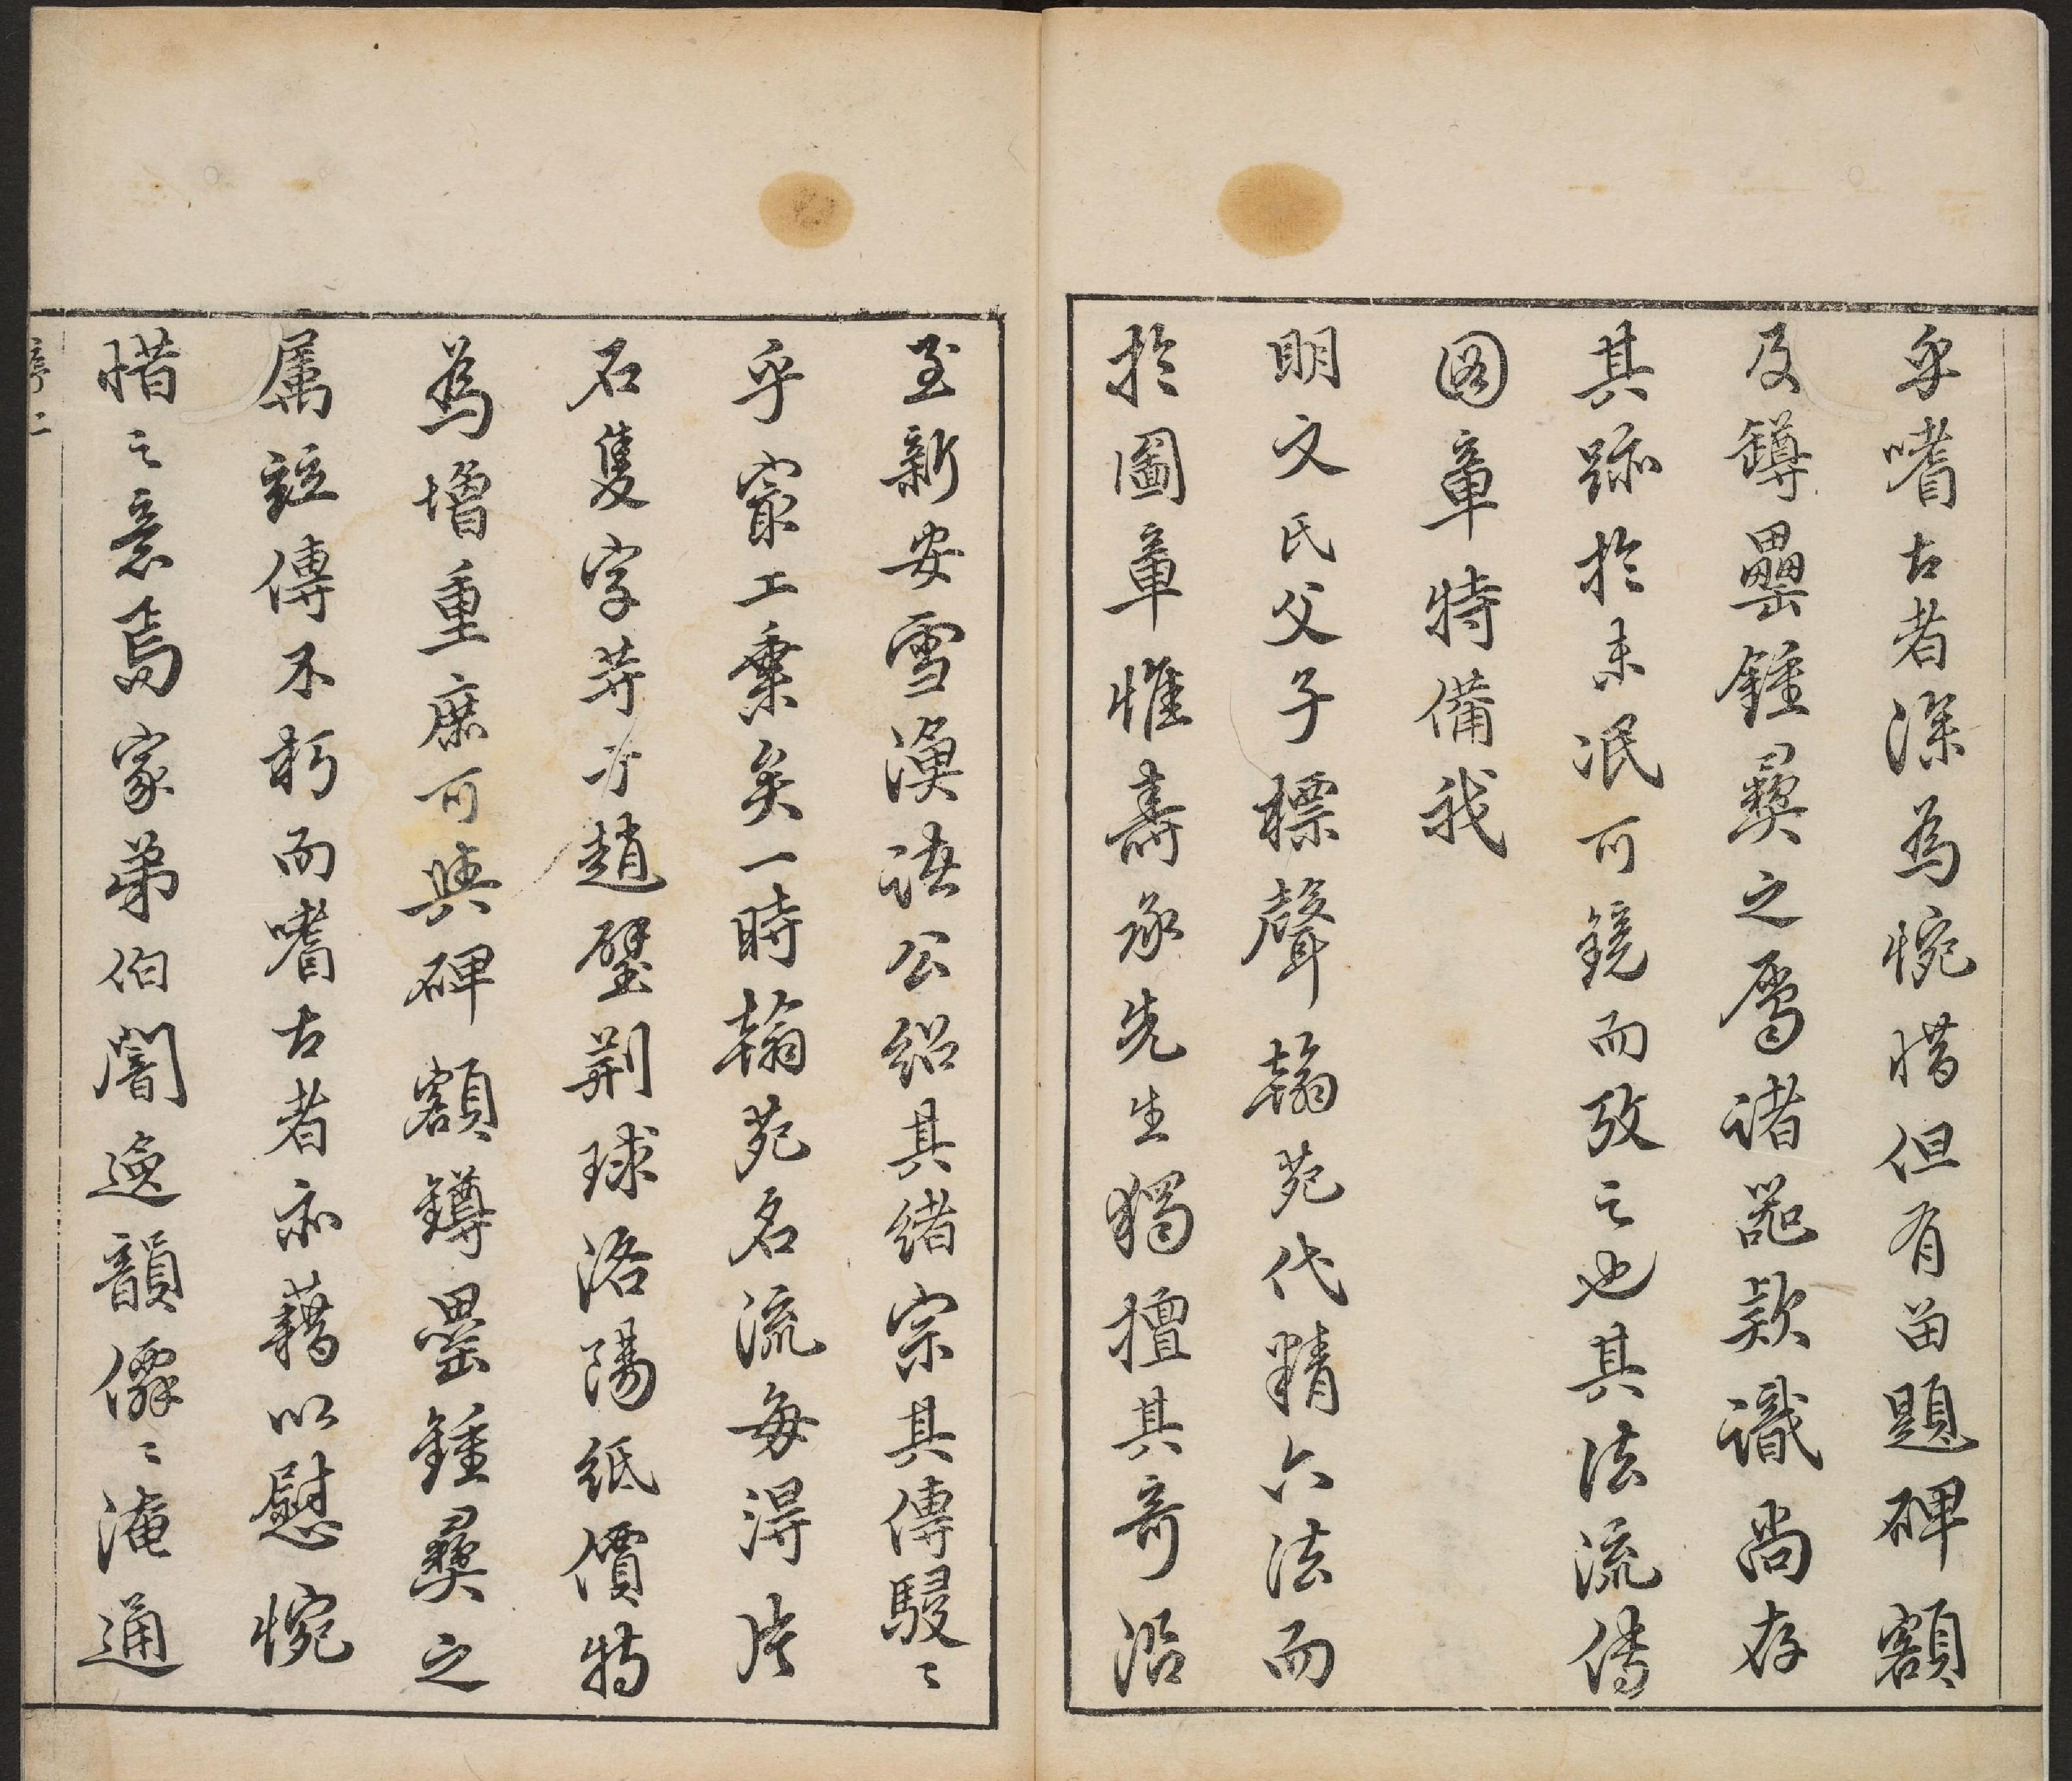 乎嗜古者深為惋惜但有留題碑額
及鐏罍鍾彞之屬諸器款識尚存
其跡於未泯可鏡而攷之也其法流傳
图章特備我
明文氏父子標聲翰苑代精六法而
於圖章惟壽承先生獨擅其奇沿
至新安雪漁諸公紹其緒宗其傳駸〻
乎窮工棄矣一時翰苑名流每淂片
石隻字茾于趙璧荆球洛陽紙價特
為增重庶可與碑額鐏罍鍾彞之
属竝傳不朽而嗜古者亦藉以慰惋
惜之意焉家弟伯闇逸韻僊〻淹通
序二